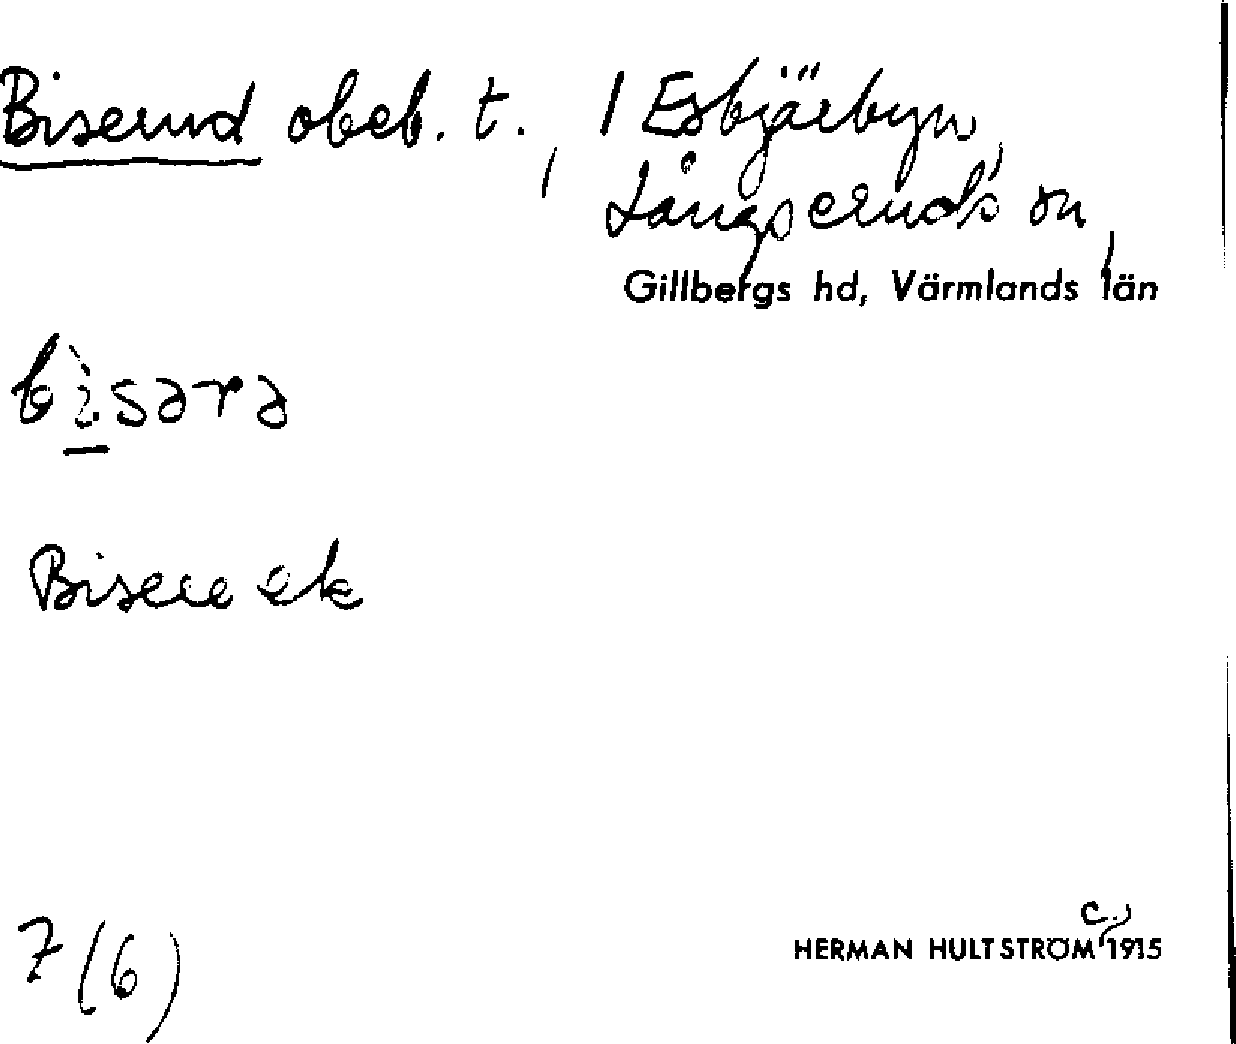 Biserud obeb. t., / Esbjörbyn,
Långseruds sn,
Gillbergs hd, Värmlands län
bìsərə
Bisere ek
7 (6)
HERMAN HULTSTRÖM c. 1915